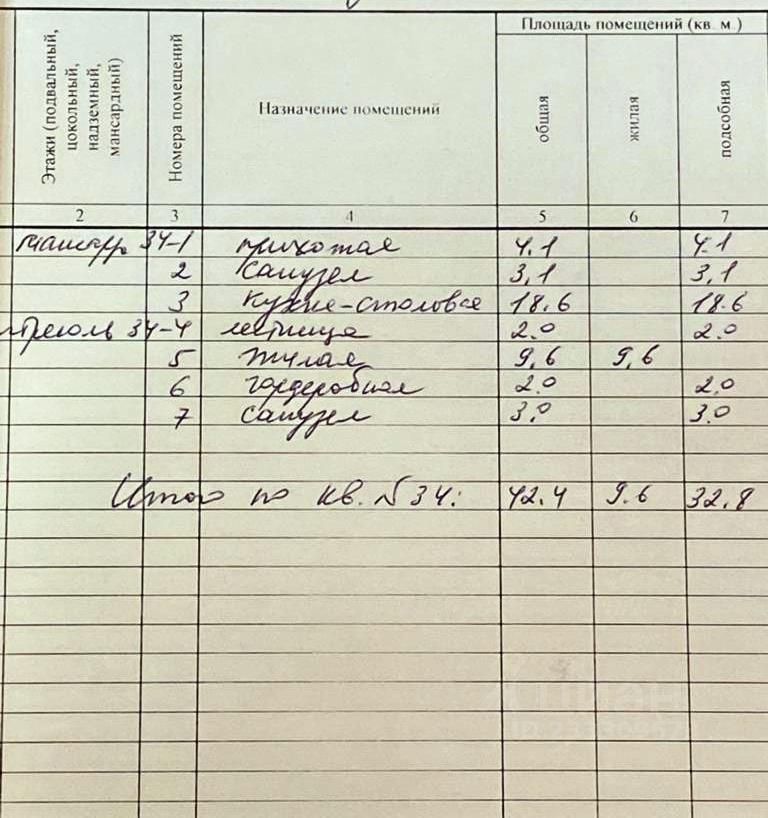 Площадь помещений (кв. м.)
Этажи (подвальный, цокольный, надземный, мансардный)
Номера помещений
Назначение помещений
общая
жилая
подсобная
2 3 4 5 6 7
мансард 34-1 прихожая 4.1 4.1
2 санузел 3,1 3,1
3 кухня-столовая 18.6 18.6
антресоль 34-4 лестница 2.0 2.0
5 жилая 9,6 9,6
6 гардеробная 2.0 2.0
7 санузел 3.0 3.0
Итого по кв. №34: 42.4 9.6 32,8
циан